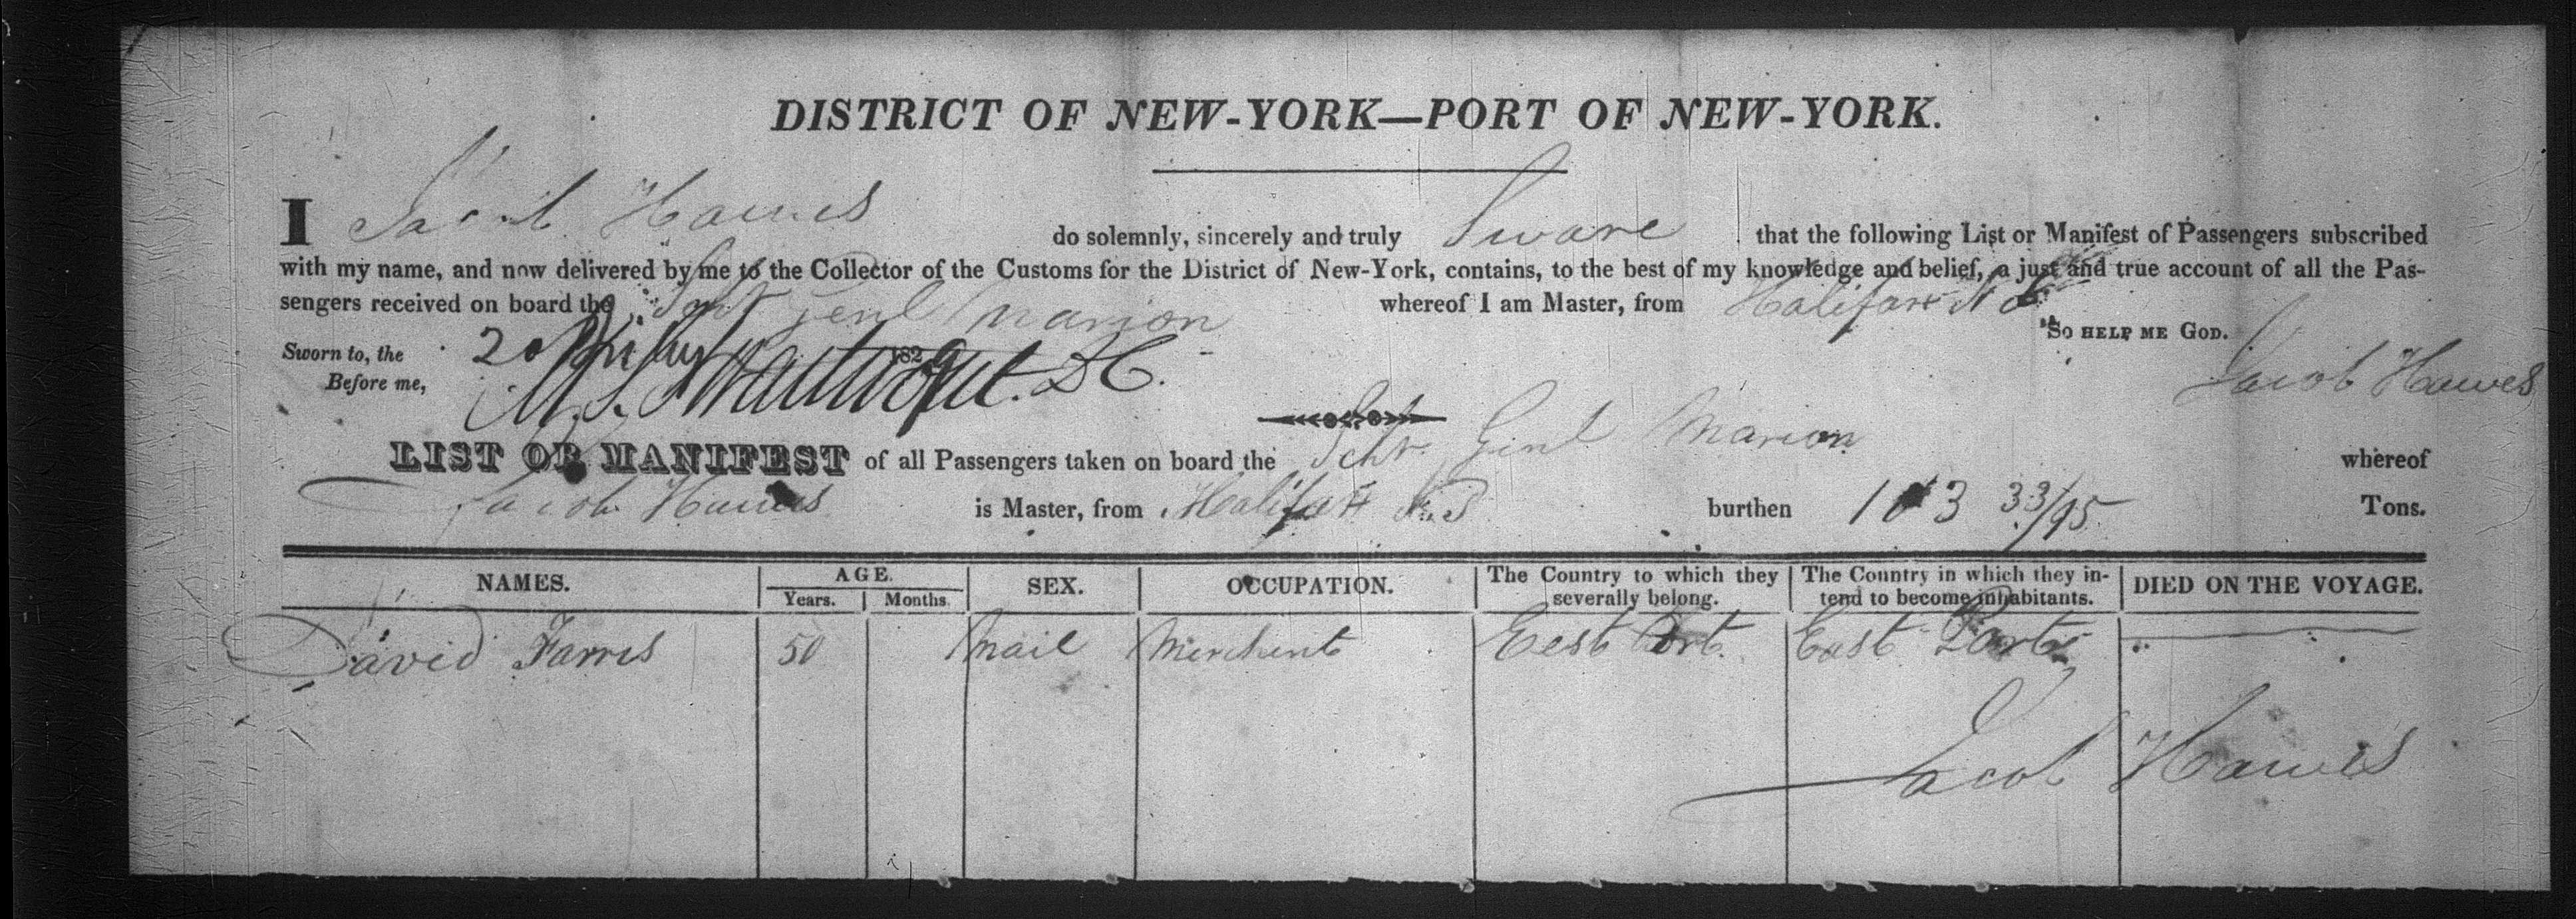 DISTRICT OF NEW-YORK—PORT OF NEW-YORK.
I Jacob Hawes do solemnly, sincerely and truly Sware that the following List or Manifest of Passengers subscribed
with my name, and now delivered by me to the Collector of the Customs for the District of New-York, contains, to the best of my knowledge and belief, a just and true account of all the Pas-
sengers received on board the Schr Genl Marion whereof I am Master, from Halifax N S
So HELP ME GOD.
Sworn to, the 20 182
Before me, M. S. Swartwout. D C.
Jacob Hawes
LIST OR MANIFEST of all Passengers taken on board the Schr. Genl Marion whereof
Jacob Hawes is Master, from Halifax N.S burthen 103 33/95 Tons.
NAMES. AGE. SEX. OCCUPATION. The Country to which they severally belong. The Country in which they in-tend to become inhabitants. DIED ON THE VOYAGE.
Years. Months.
David Farris 50 Mail Merchent Eest Port. East Port
Jacob Hawes